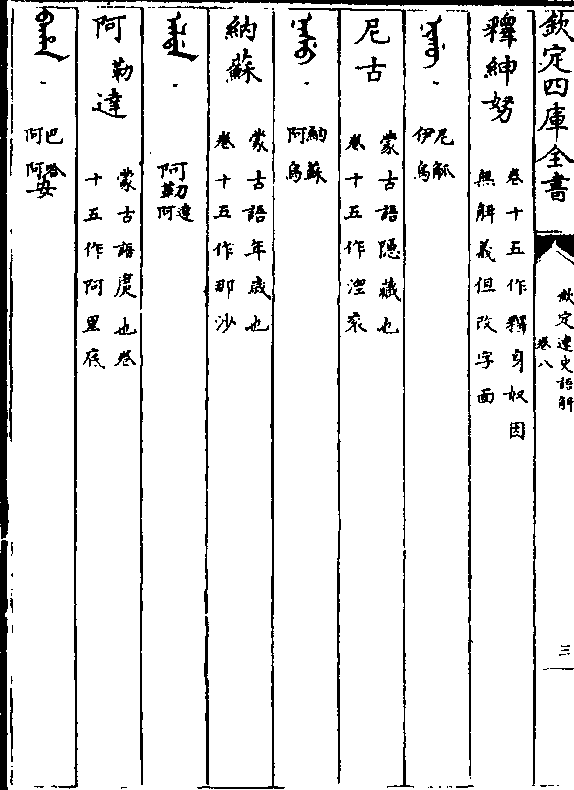 欽定四庫全書
欽定遼史語解
卷八
三
釋紳努
卷十五作釋身奴因
無解義但改字面
尼觚
伊烏
尼古
蒙古語隠藏也
卷十五作湼
納蘇
阿烏
納蘇
蒙古語年歲也
卷十五作那沙
阿勒達
阿
阿勒達
蒙古語庹也卷
十五作阿里底
巴哈安
阿阿